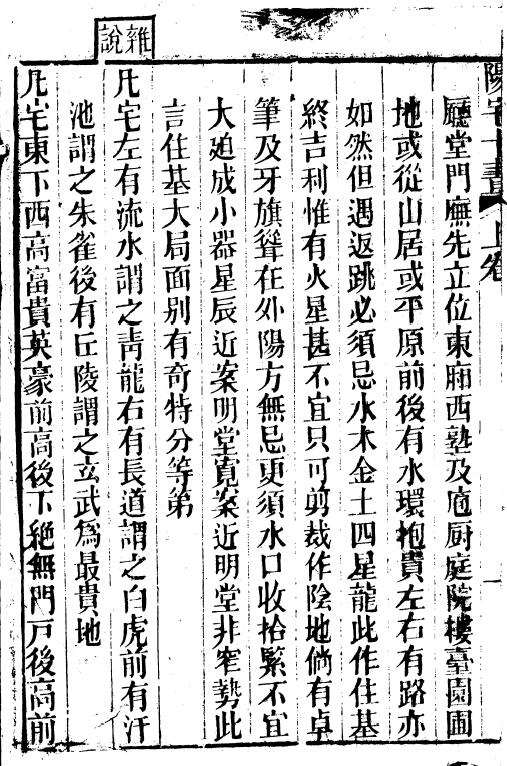 陽宅十書 上卷 一
廳堂門廡先立位東廂西塾及庖厨庭院樓臺園圃
地或從山居或平原前後有水環抱貴左右有路亦
如然但遇返跳必須忌水木金土四星龍此作住基
終吉利惟有火星甚不宜只可剪裁作陰地倘有卓
筆及牙旗聳在外陽方無忌更須水口收拾緊不宜
大廹成小器星辰近案明堂寬案近明堂非窄勢此
言住基大局面别有奇特分等第
雜說
凡宅左有流水謂之靑龍右有長道謂之白虎前有汙
池謂之朱雀後有丘陵謂之玄武爲最貴地
凡宅東下西高富貴英豪前高後下絶無門戸後高前